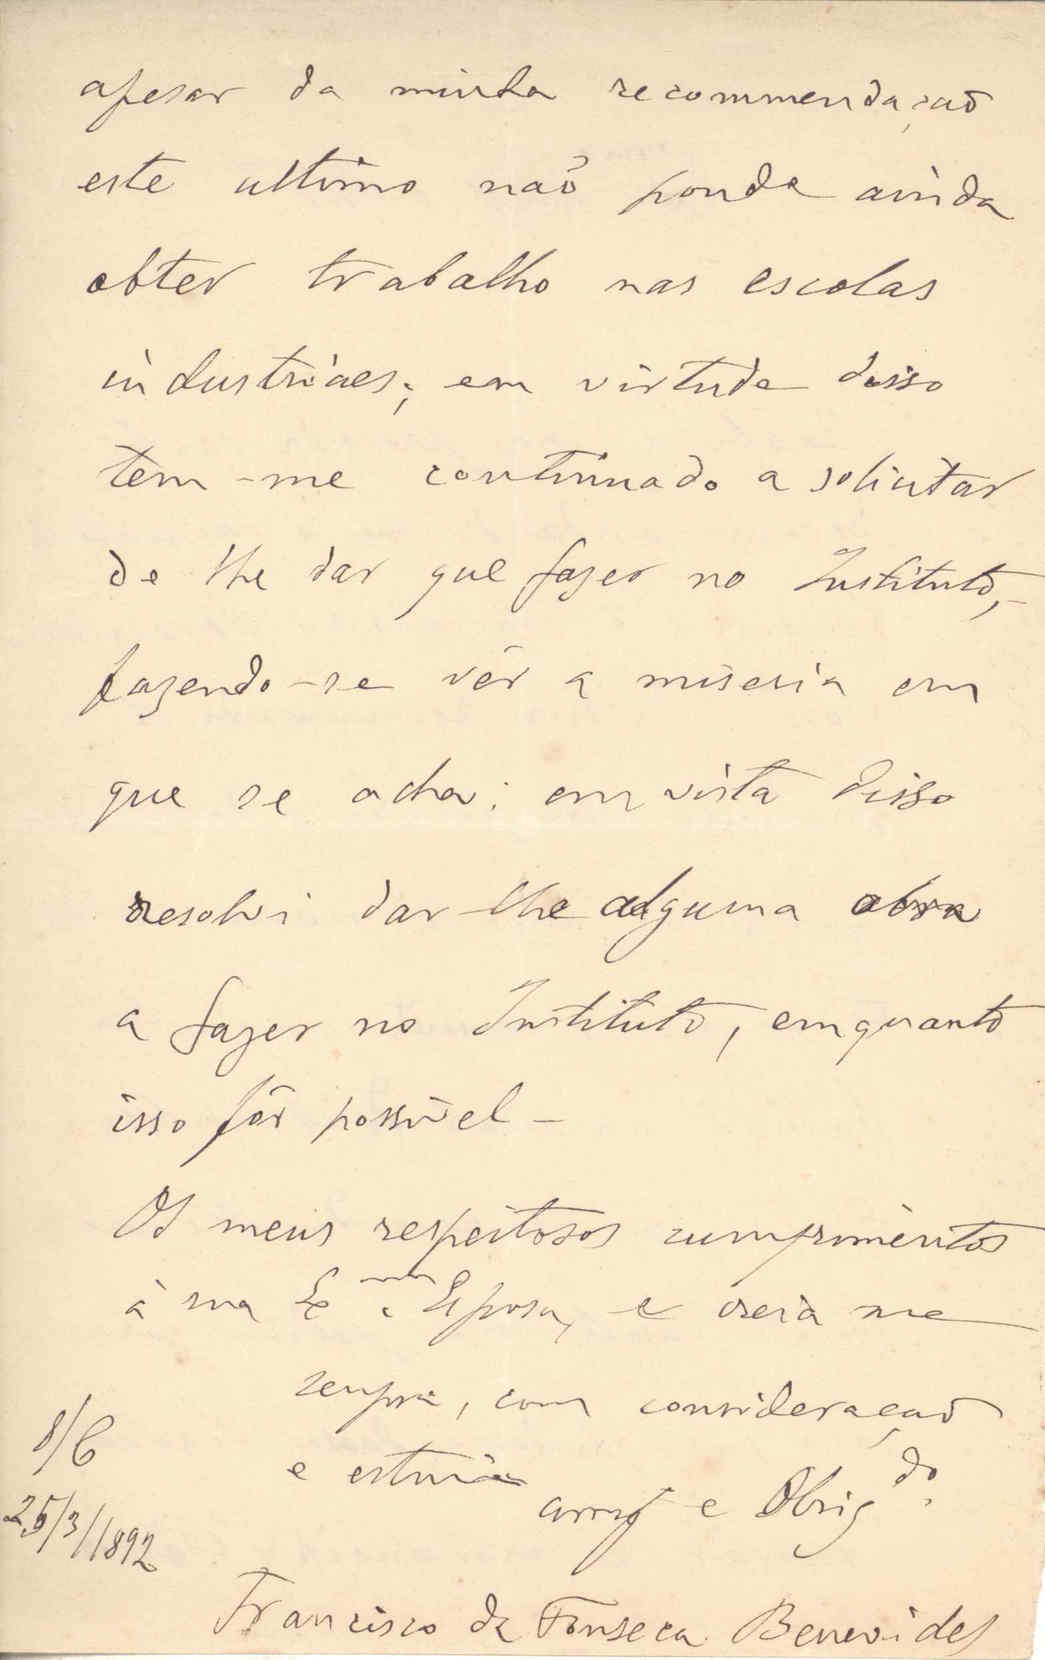 apesar da minha recommendação
este ultimo não poude ainda
obter trabalho nas escolas
industriaes; em virtude disso
tem-me continuado a solicitar
de lhe dar que fazer no Instituto,-
fazendo-se vêr a miseria em
que se acha; em vista disso
resolvi dar-lhe alguma obra
a fazer no Instituto, emquanto
isso fôr possivel -
Os meus respeitosos cumprimentos
á sua Ex.ma Esposa, e creia me
sempre, com consideração
e estima
amg e Obrig.do
S/C
25/3/1892
Francisco da Fonseca Benevides